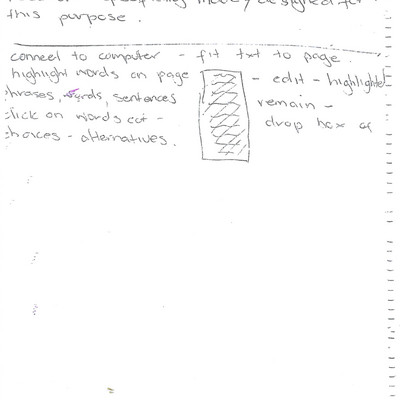 this purpose.
connect to computer - fit txt to page.
highlight words on page
phrases, words, sentences
click on words cut -
choices - alternatives.
- edit - highlighted
remain -
drop box of